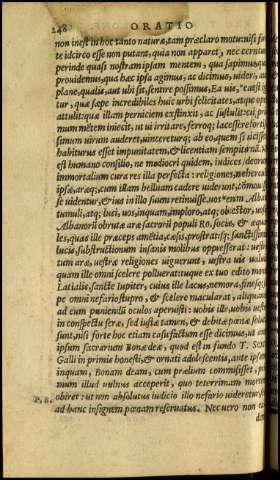 248 ORATIO
non inest in hoc tanto naturæ, tam præclaro motu: nisi
te idcirco esse non putant, quia non apparet, nec cernitur
perinde quasi nostram ipsam mentem, qua sapimus, qua
prouidemus, qua hæc ipsa agimus, ac dicimus, uidere, aut
plane, qualis, aut ubi sit, sentire possimus. Ea uis,
tur, quæ sæpe incredibiles huic urbi felicitates, atque opes
attulit: quæ illam perniciem extinxit, ac sustulit: cui
mum mētem iniecit, ut ui irritare, ferroq; lacessere
simum uirum auderet, uinceretur{q́}; ab eo, quem si uicisset,
habiturus esset impunitatem, & licentiam sempiternā.
est humano consilio, ne mediocri quidem, iudices, deorum
immortalium cura res illa perfecta: religiones, mehercule,
ipsæ, aræq;, cum illam belluam cadere uiderunt, cōmou
se uidentur, & ius in illo suum retinuisse. uos enim Albani
tumuli, atq; luci, uos, inquam, imploro, atq; obtestor, uosq;
Albanorū obrutæ aræ sacrorū populi Ro. sociæ, & æqua
les, quas ille præceps amentia, cæsis, prostratisq; sanctissimis
lucis, substructionum insanis molibus oppresserat:
tum aræ, uestræ religiones uiguerunt, uestra uis ualuit,
quam ille omni scelere polluerat: tuque ex tuo edito monte
Latialis, sancte Iupiter, cuius ille lacus, nemora,
pe omni nefario stupro, & scelere macularat, aliquando
ad eum puniendū oculos aperuisti: uobis illæ, uobis uestro
in conspectu seræ, sed iustæ tamen, & debitæ pœnæ
sunt, nisi forte hoc etiam casu factum esse dicimus, ut ante
ipsum sacrarium Bonæ deæ, quod est in fundo T.
Galli in primis honesti, & ornati adolescentis, ante ipsam,
inquam, Bonam deam, cum prælium commisisset,
mum illud uulnus acceperit, quo teterrimam mortem
obiret: ut non absolutus iudicio illo nefario uideretur,
ad hanc insignem pœnam reseruatus. Nec uero non